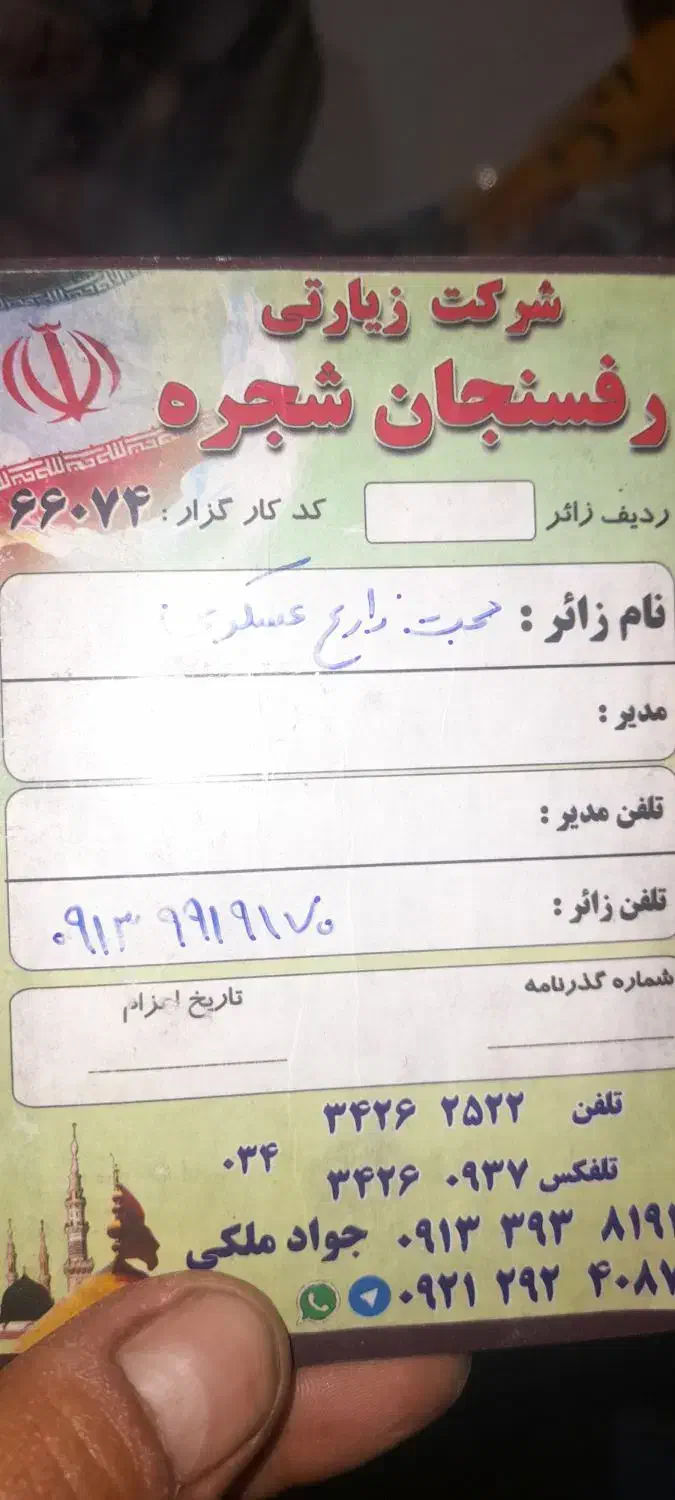 شرکت زیارتی
رفسنجان شجره
ردیف زائر کد کار گزار : ۶۶۰۷۴
نام زائر : محبت زارع عسکری
مدیر :
تلفن مدیر :
تلفن زائر : ۰۹۱۳ ۹۹۱۹۱۷۰
شماره گذرنامه تاریخ اعزام
تلفن ۳۴۲۶ ۲۵۲۲
۰۳۴
تلفکس ۳۴۲۶ ۰۹۳۷
۰۹۱۳ ۳۹۳ ۸۱۹۲ جواد ملکی
۰۹۲۱ ۲۹۲ ۴۰۸۷